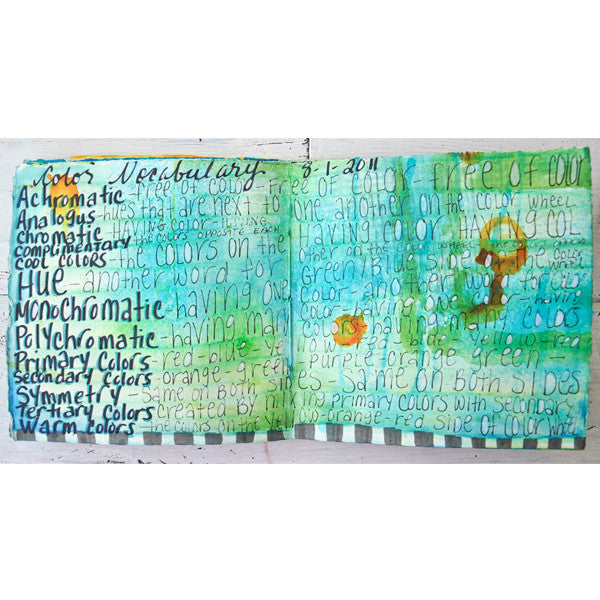 Color Vocabulary 8-1-2011
Achromatic - free of color - free of color - free of color
Analogus - hues that are next to one another on the color wheel
chromatic - having color - having color - having col
complimentary - the colors opposite each other on the color wheel - the colors opposite
cool colors - the colors on the green/blue side the color wheel
Hue - another word for color - another word for color
Monochromatic - having one color - having one color - having
Polychromatic - having many colors - having many colors
Primary Colors - red - blue - yellow - red - blue - yellow - red
Secondary Colors - orange - green - purple - orange - green -
Symmetry - Same on both sides - same on both sides
Tertiary Colors created by mixing Primary colors with secondary
Warm Colors - the colors on the yellow - orange - red side of color wheel